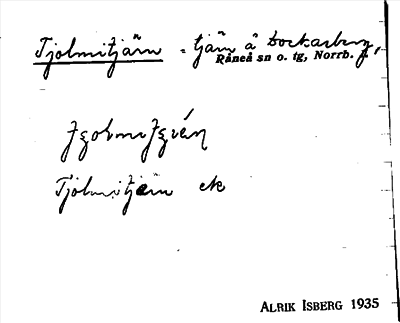 Tjolmitjärn - tjärn å Dockasberg,
Råneå sn o. tg, Norrb. l.
Tjolmitjärn ek
ALRIK ISBERG 1935